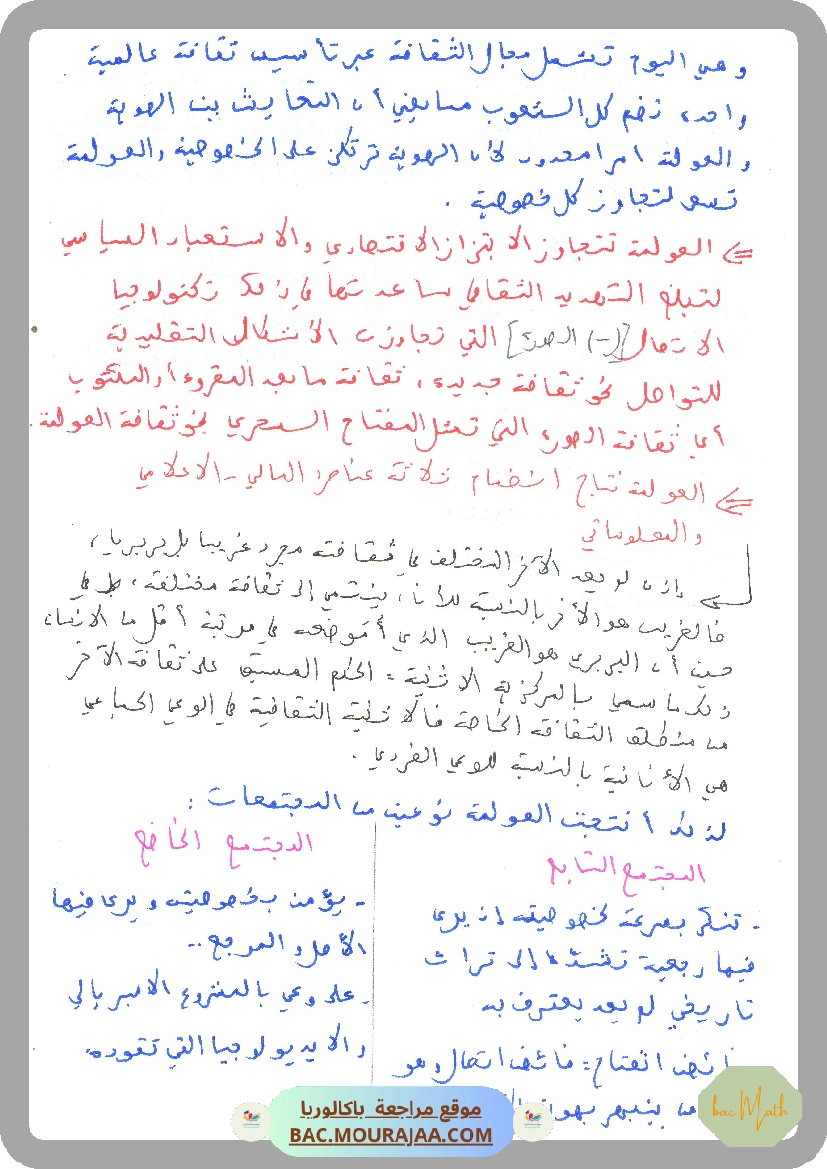 وهي اليوم تشمل مجال الثقافة عبر تأسيس ثقافة عالمية
واحدة تضم كل الشعوب مما يعني أن التعايش بين الهوية
والعولمة امرا محدود لأن الهوية ترتكز على الخصوصية والعولمة
تسعى لتجاوز كل خصوصية .
⇐ العولمة تتجاوز الابتزاز الاقتصادي والاستعمار السياسي
لتبلغ التهديد الثقافي ساعدتها في ذلك تكنولوجيا
الاتصال [(-) الصورة] التي تجاوزت الأشكال التقليدية
للتواصل نحو ثقافة جديدة ، ثقافة ما بعد المقروء أو المكتوب
أي ثقافة الصورة التي تمثل المفتاح السحري نحو ثقافة العولمة .
⇐ العولمة نتاج انضمام ثلاثة عناصر: المالي - الاعلامي
والمعلوماتي
إذن لم يعد الآخر المختلف في ثقافته مجرد غريبا بل بربريا ،
فالغريب هو الآخر بالنسبة للأنا ، ينتمي إلى ثقافة مختلفة ، في
حين أن البربري هو الغريب الذي أموضعه في مرتبة أقل من الانسان
ذلك ما سمي بالمركزية الاثنية = الحكم المسبق على ثقافة الآخر
من منطلق الثقافة الخاصة فالاثنية الثقافية في الوعي الجماعي
هي الأنانية بالنسبة للوعي الفردي .
لذلك أنتجت العولمة نوعين من المجتمعات :
المجتمع التابع
- تنكر بسرعة لخصوصيته إذ يرى
فيها رجعية تشده إلى تراث
تاريخي لم يعد يعترف به
انفتاح = فائض اتصال وهو
من ينبهر بهوية
المجتمع الخاضع
- يؤمن بخصوصيته ويرى فيها
الأصل والمرجع ..
- على وعي بالمشروع الامبريالي
والايديولوجيا التي تقوده.
موقع مراجعة باكالوريا
BAC.MOURAJAA.COM
bac Math